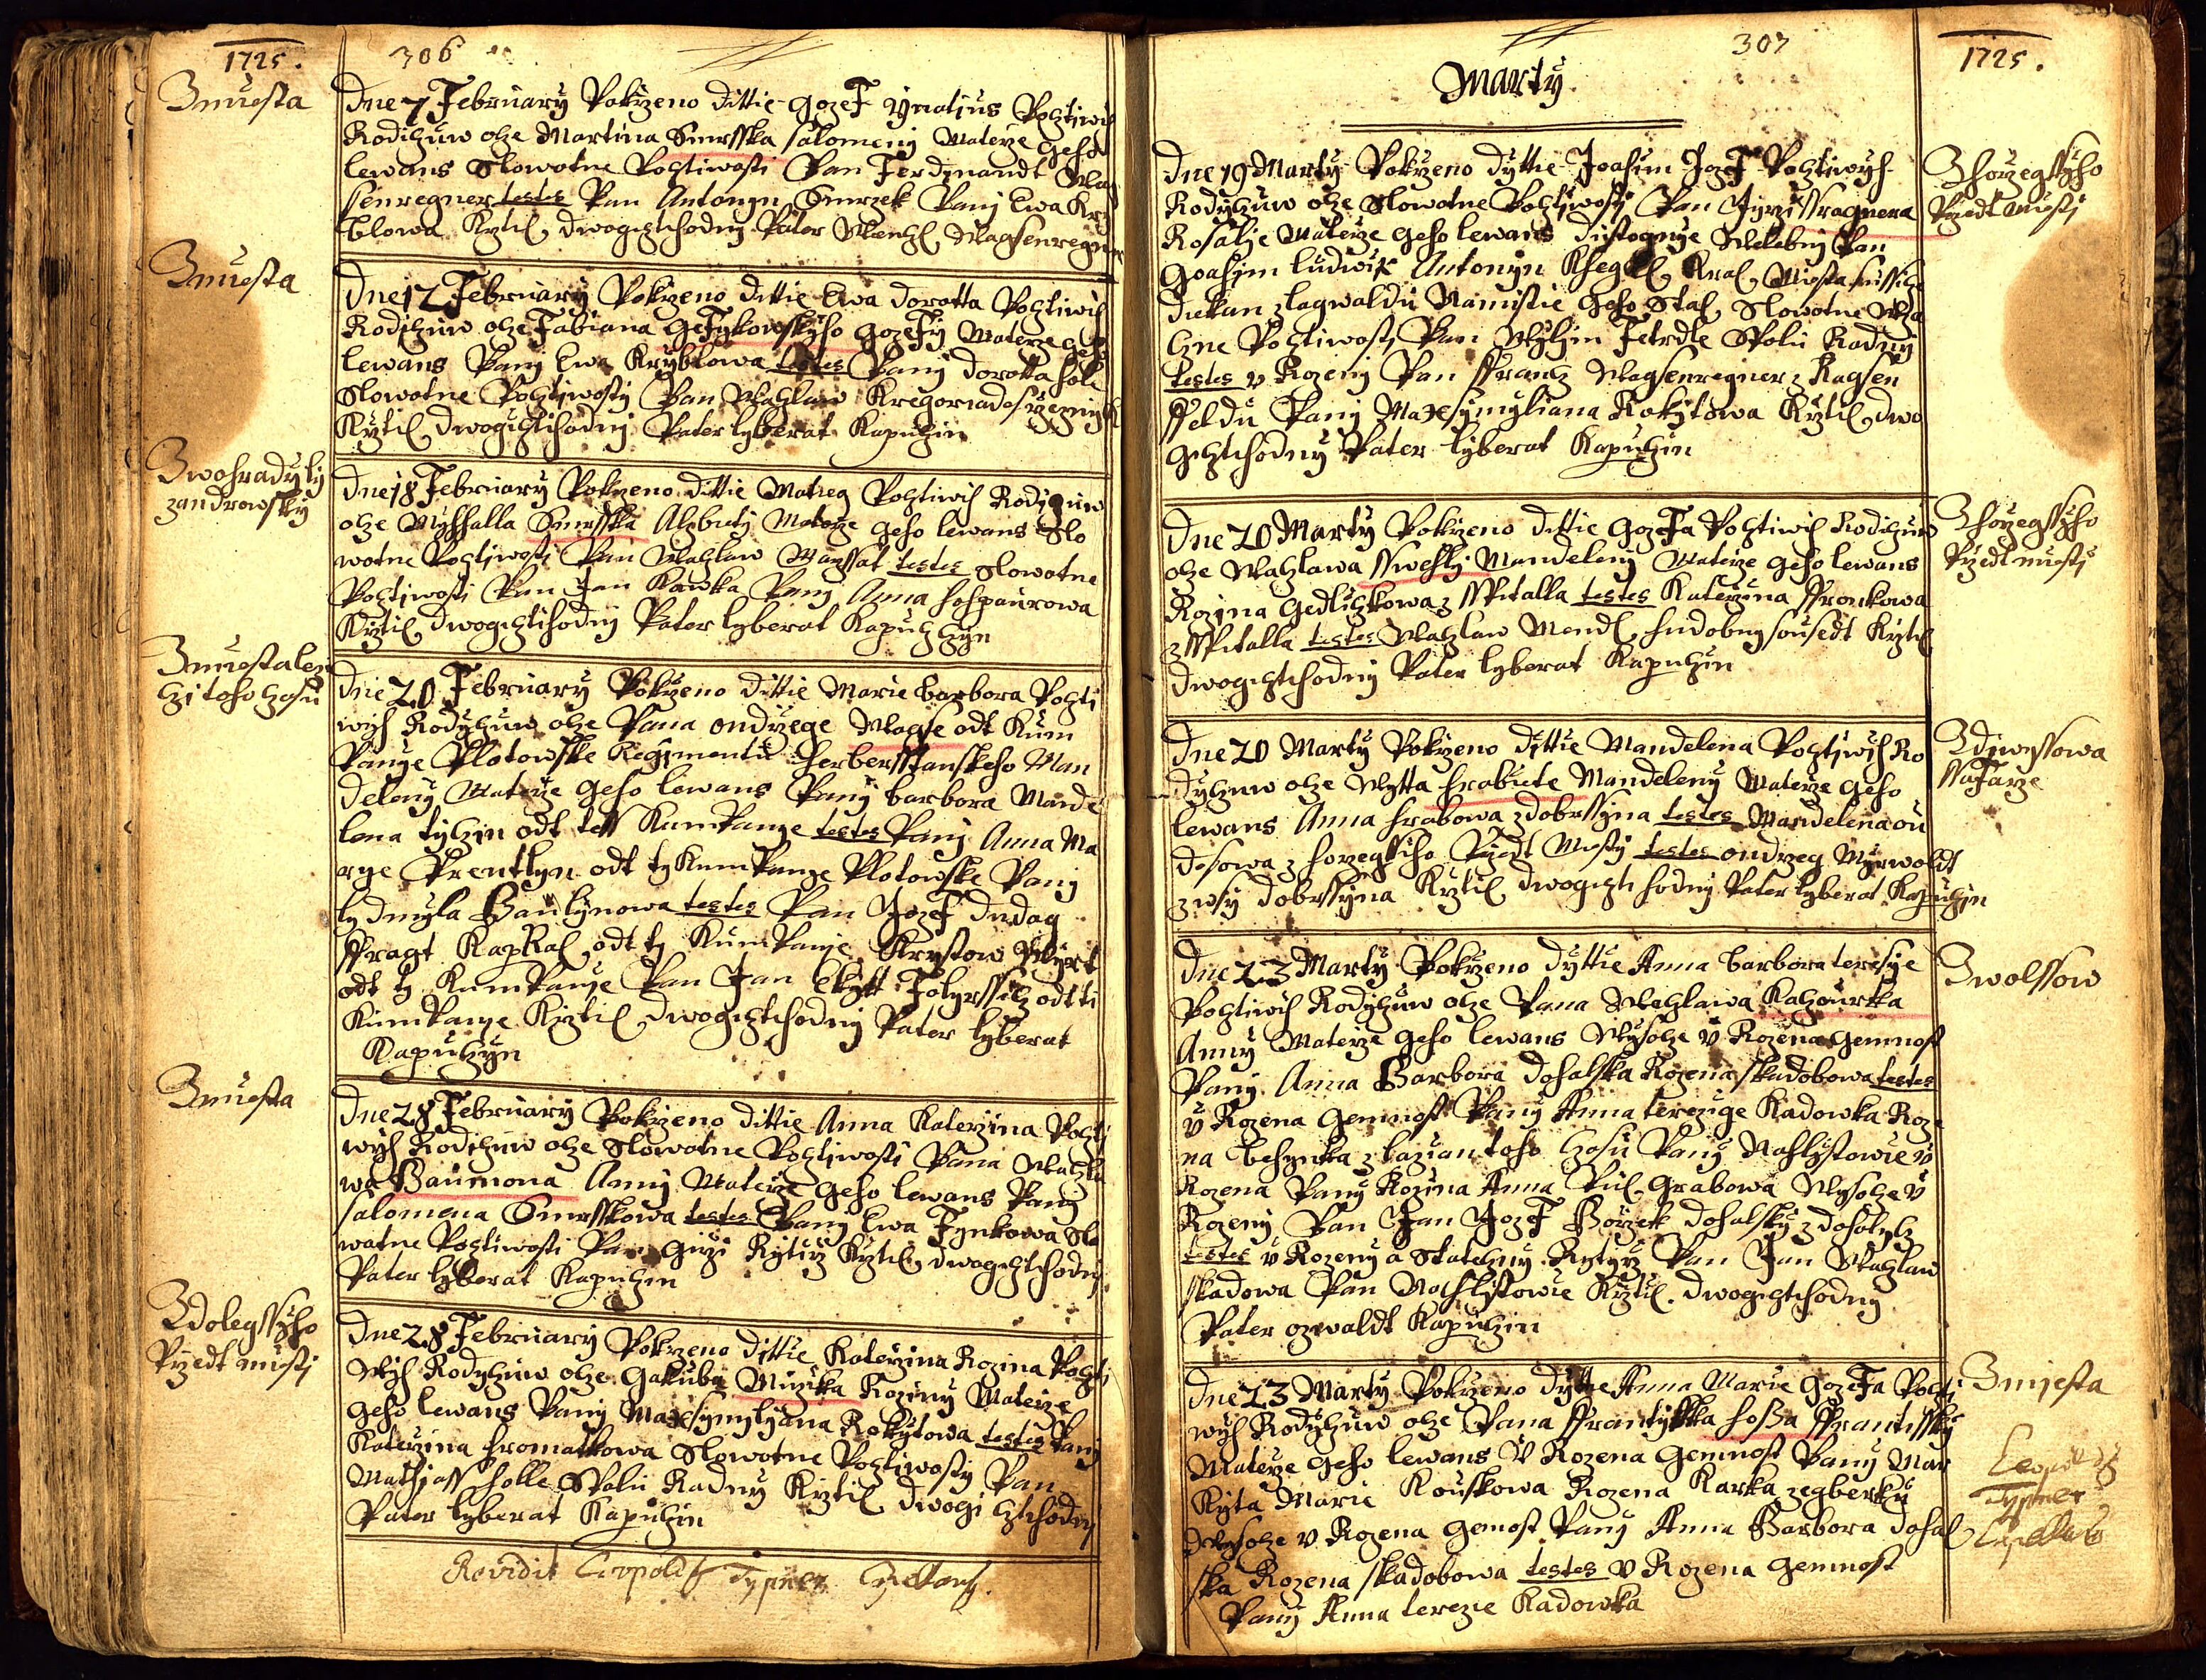 1725.
306
Zmiesta
Dne 7 February Pokrzeno dittie Gozef Ignatius Pocztiwich
Rodiczuw otze Martina Smrsska Salomeny Materze geho
lewans Slowotne Pocztiwosti Pan Ferdynandt Wag
senregner testes Pan Antonyn Smrzek Pany Ewa Kry
blowa Krztil dwogicztihodny Pater Wenczl Wagsenregner
Zmiesta
Dne 12 February Pokrzeno dittie Ewa Dorotta Pocztiwich
Rodiczuw otze Fabiana Gefykowskyho Gozefy Materze geho
lewans Pany Ewa Kryblowa testes Pany Dorotta
Slowotne Pocztiwosty Pan Waczlaw
Krztil dwogicztihodny Pater lyberat Kapuczin
Zwohrady ly
zandrowsky
Dne 18 February Pokrzeno dittie Matieg Pocztiwich Rodiczuw
otze Myhalla Smrsska Alzbiety Materze geho lewans Slo
wotne Pocztiwosti Pan Waczlaw Manssat testes Slowotne
Pocztiwosti Pan Jan Kawka Pany Anna hospaurowa
Krztil dwogicztihodny Pater lyberat Kapuczyn
Zmiesta lezi
czi toho czasu
Dne 20 February Pokrzeno dittie Marie Barbora Poczti
wych Rodyczuw otze Pana ondrzege Wagse odt Kum
Panye Plotowske Regimentu Herbersstanskeho Man
deleny Materze geho lewans Pany barbora Mande
lena tyczin odt tess KumPanye testes Pany Anna Ma
rye Prentlyn odt ty KumPanye Plotowske Pany
lydmyla Baulynowa testes Pan Jozef dudag
ffragt KapRal odt ty KumPanie Krystow Wyrt
odt ty KumPanye Pan Jan Folyrssicz odt ti
KumPanye Krztil dwogicztihodny Pater lyberat
Kapuczyn
Zmiesta
Dne 28 February Pokrzeno dittie Anna Katerzina Poczti
wych Rodiczuw otze Slowotne Pocztiwosti Pana Waczla
wa Baumona Anny Materze geho lewans Pany
Salomena Smrsskowa testes Pany Ewa Fynkowa Slo
wotne Pocztiwosti Pan Girzi Rytirz Krztil dwogicztihodny
Pater lyberat Kapuczin
Zdolegssyho
Przedt miesti
Dne 28 February Pokrzeno dittie Katerzina Rozina Poczti
wych Rodyczuw otze Gakuba Muzika Roziny Materze
geho lewans Pany Maxsymylyana Rokytowa testes Pany
Katerzina hromatkowa Slowotne Pocztiwosty Pan
Mathiass holle Spolu Radny Krztil dwogi cztihodny
Pater lyberat Kapuczin
Revidit Leopold Typner
307
1725.
Marty.
Zhorzegssyho
Przedt miesti
Dne 19 Marty Pokrzeno dyttie Joahim Jozef Pocztiwych
Rodyczuw otze Slowotne Pocztiwosti Pan Jyrzi ffragnera
Rosalye Materze geho lewans dustogne Welebny Pan
Goahim ludwik Antonyn Kral Miesta sussicze
diekan zlagwaldu Namistie geho Stal Slowotne
czne Pocztiwosti Pan Wylym Fetrdle Spolu Radny
testes u Rozeny Pan ffrancz Wagsenregner z Ragsen
ffeldu Pany Maxsymyliana Rokytowa Krztil dwo
gicztihodny Pater lyberat Kapuczin
Zhorzegssyho
Przedt miesti
Dne 20 Marty Pokrzeno dittie Gozefa Pocztiwich Rodiczuw
otze Waczlawa sswestky Mandeleny Materze geho lewans
Rozina Gedliczkowa z sspitalla testes Katerzina ffronkowa
z sspitalla testes Waczlaw Mendl hudobny sousedt Krztil
dwogicztihodny Pater lyberat Kapuczin
Zdiwyssowa
ssafarze
Dne 20 Marty Pokrzeno dittie Mandelena Pocztiwich Ro
dyczuw otze Wytta hrabiete Mandeleny Materze geho
lewans Anna hrabowa zdobrssyna testes Mandelena ou
dosowa z horzegssiho Przedt Miesty testes ondrzeg Myrwoldt
zwsy dobrssyna Krztil dwogiczti hodny Pater lyberat Kapuczin
Zwolssow
Dne 23 Marty Pokrzeno dyttie Anna Barbora teresye
Pocztiwich Rodyczuw otze Pana Waczlawa Kaczourka
Anny Materze geho lewans Wysotze u Rozena Gemnost
Pany Anna Barbora dohalska Rozena skadobowa testes
u Rozena Gemnost Pany Anna terezye Kadowka Roze
na behynka z lazian toho czasu Pany Nahlystowie u
Rozena Pany Rozina Anna Grabowa Wysotze u
Rozeny Pan Jan Jozef Borzek dohalsky z dohalycz
testes u Rozeny a Stateczny Rytyrz Pan Jan Waczlaw
skadowa Pan Nahlystowie Krztil dwogicztihodny
Pater ozwaldt Kapuczin
Zmiesta
Dne 23 Marty Pokrzeno dyttie Anna Marie Gozefa Poczti
wych Rodyczuw otze Pana ffrantysska hossa ffrantissky
Materze geho lewans u Rozena Gemnost Pany Mar
kyta Marie Kouskowa Rozena Karka zegberku
Wysotze u Rozena Gemost Pany Anna Barbora dohal
ska Rozena skadobowa testes u Rozena Gemnost
Pany Anna terezie Kadowka
Leopold
Typner